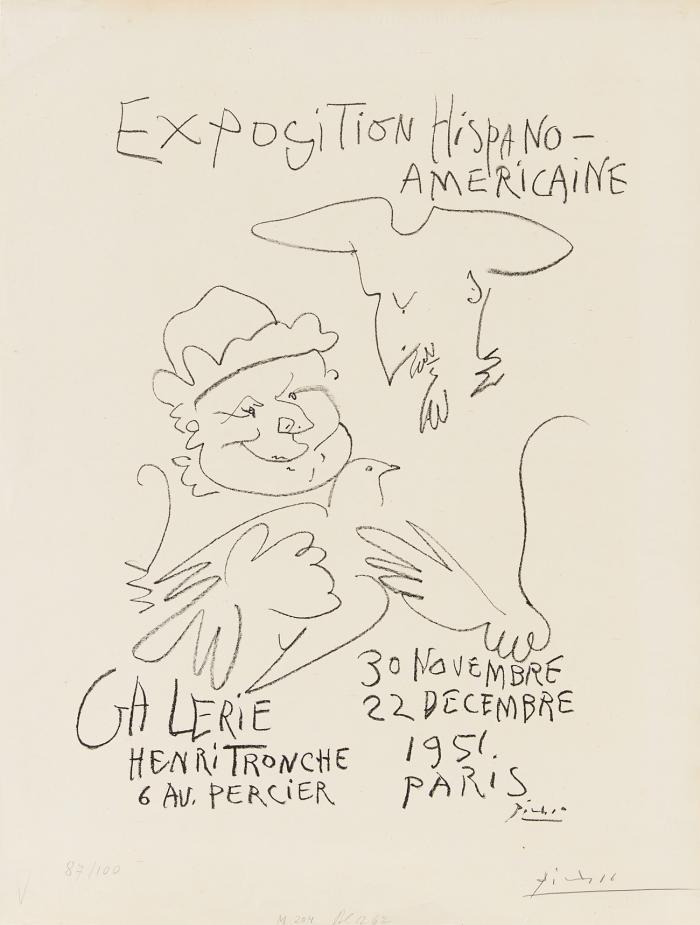 EXPOSITION HISPANO-
AMERICAINE
GALERIE
HENRI TRONCHE
6 AV. PERCIER
30 NOVEMBRE
22 DECEMBRE
1951.
PARIS
Picasso
87/100
Picasso
M. 204